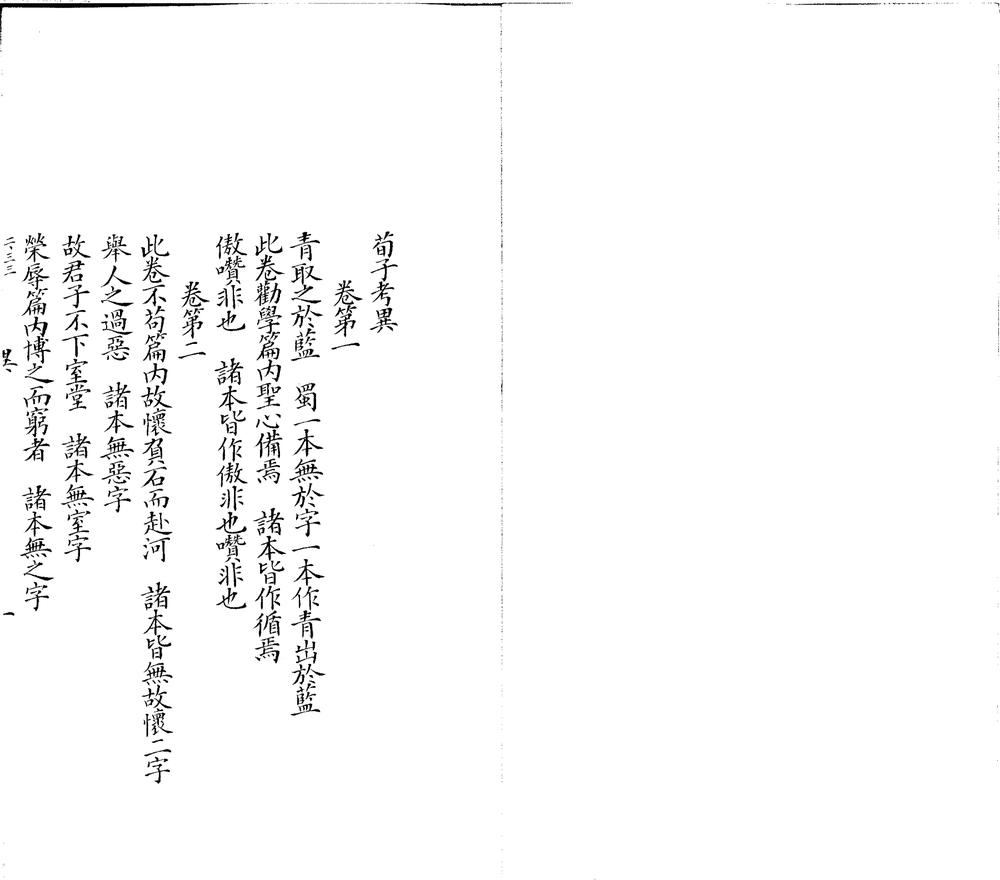 荀子考異
卷第一
青取之於藍　蜀一本無於字一本作青出於藍
此卷勸學篇内聖心備焉　諸本皆作循焉
傲囋非也　諸本皆作傲非也囋非也
卷第二
此卷不苟篇内故懷負石而赴河　諸本皆無故懷二字
舉人之過惡　諸本無惡字
故君子不下室堂　諸本無室字
榮辱篇内博之而窮者　諸本無之字
一